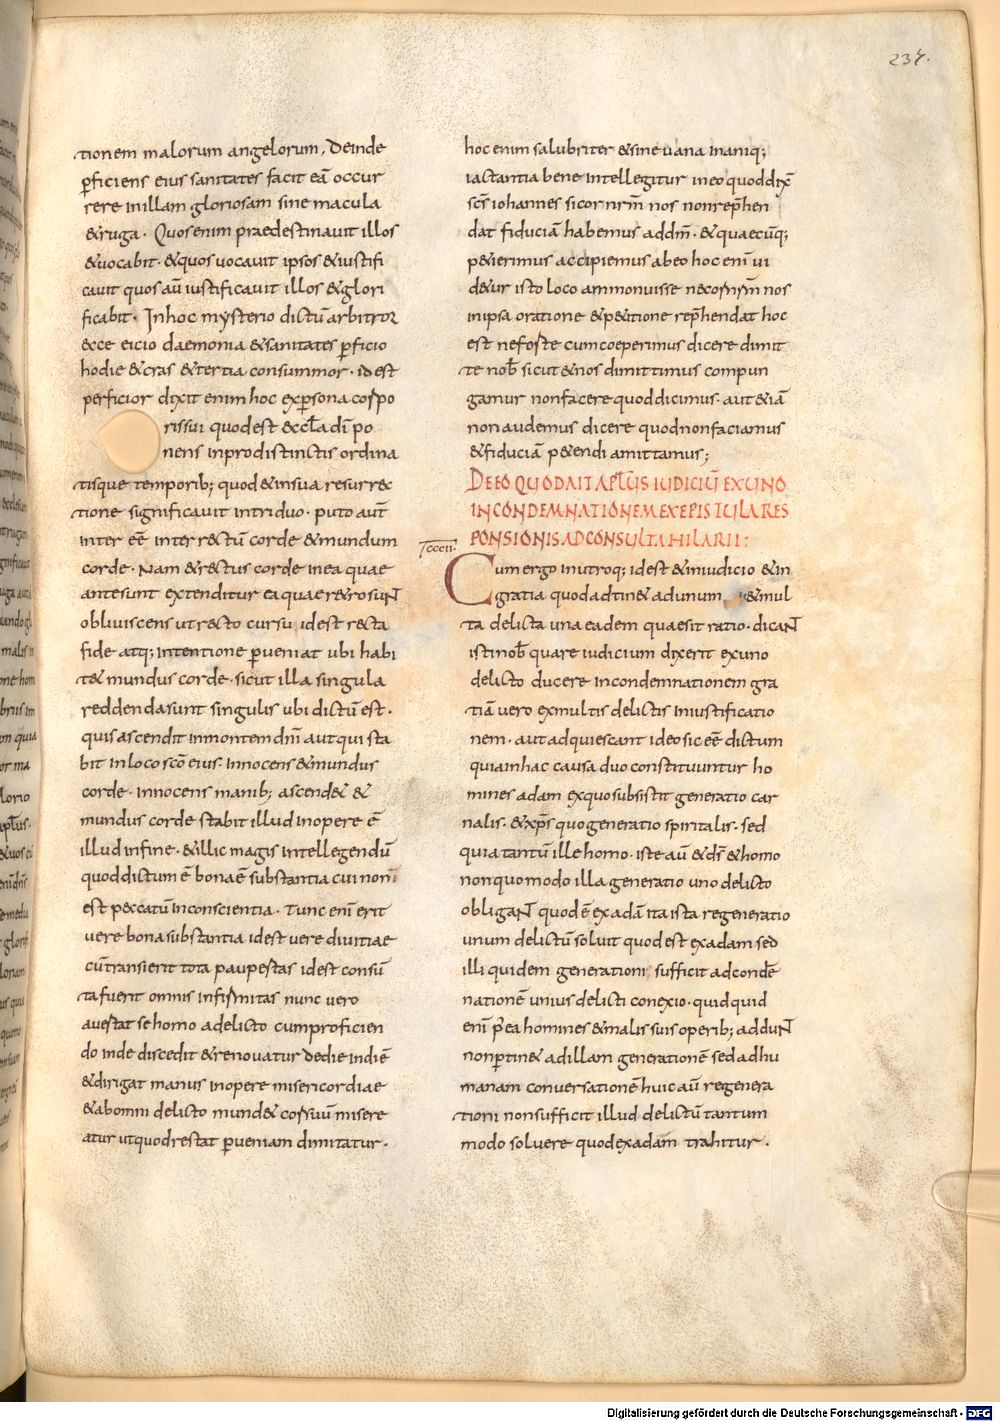 237.
tionem malorum angelorum, Deinde
p̱ficiens eius sanitates facit eā occur
rere inillam gloriosam sine macula
&ruga. Quosenim praedestinauit illos
&uocabit. &quos uocauit ipsos &iustifi
cauit quos aū iustificauit illos &glori
ficabit. Inhoc mysterio dictū arbitror
ecce eicio daemonia &sanitates p̱ficio
hodie &cras &tertia consummor. id est
perficior dixit enim hoc exp̱sona corpo
ris sui quod est eccl̄a dī po
nens inprodistinctis ordina
tisque temporib; quod &insua resurrec
tione significauit intriduo. puto aut̄
inter eē inter rectū corde &mundum
corde. Nam &rectus corde inea quae
ante sunt extenditur ea quae r&rosunt
obliuiscens ut recto cursu id est recta
fide atq; intentione p̱ueniat ubi habi
t& mundus corde. sicut illa singula
reddenda sunt singulis ubi dictū est.
quis ascendit inmontem dn̄i aut qui sta
bit inloco sc̄o eius. Innocens &mundus
corde. Innocens manib; ascend& &
mundus corde stabit illud inopere ē
illud infine. &illic magis intellegendū
quod dictum ē bona ē substantia cui non
est peccatū inconscientia. Tunc enī erit
uere bona substantia id est uere diuitiae
cū transierit tota paup̱estas id est consū
ta fuerit omnis infirmitas nunc uero
auertat se homo adelicto cum proficien
do inde discedit &renouatur dedie indiē
&dirigat manus inopere misericordiae
&abomni delicto mund& cor suū misere
atur ut quod restat p̱ueniam dimitatur.
hoc enim salubriter &sine uana inaniq;
iactantia bene intellegitur in eo quod dix̄
sc̄s iohannes si cor nr̄m nos non rep̄hen
dat fiduciā habemus add̄m. &quaecūq;
p&ierimus accipiemus abeo hoc enī ui
d&ur isto loco ammonuisse ne cor nr̄m nos
inipsa oratione &p&itione rep̄hendat hoc
est ne forte cum coeperimus dicere dimit
te nob̄ sicut &nos dimittimus compun
gamur nonfacere quod dicimus. aut &iā
non audemus dicere quod non faciamus
&fiduciā p&endi amittamus;
DE EO QUOD AIT APL̄US IUDICIŪ EX UNO
IN CONDEMNATIONEM EX EPISTULA RES
PONSIONIS AD CONSULTA HILARII:
Tcccii.
Cum ergo inutroq; id est &iniudicio &in
gratia quod adtin& adunum &mul
ta delicta una eadem quaesit ratio. dicant
isti nob̄ quare iudicium dixerit ex uno
delicto ducere incondemnationem gra
tiā uero exmultis delictis iniustificatio
nem. aut adquiescant ideo sic eē dictum
quia inhac causa duo constituuntur ho
mines adam ex quo subsistit generatio car
nalis. &xp̄s quo generatio spiritalis. sed
quia tantū ille homo. iste aū &ds̄ &homo
non quomodo illa generatio uno delicto
obligant quod ē ex adā ita ista regeneratio
unum delictū soluit quod est ex adam sed
illi quidem generationi sufficit adcondē
nationē unius delicti conexio. quidquid
enī p̄ea homines &malis suis operib; addunt
non p̱tin& adillam generationē sed ad hu
manam conuersationē huic aū regenera
tioni non sufficit illud delictū tantum
modo soluere quod ex adam trahitur.
Digitalisierung gefördert durch die Deutsche Forschungsgemeinschaft - DFG